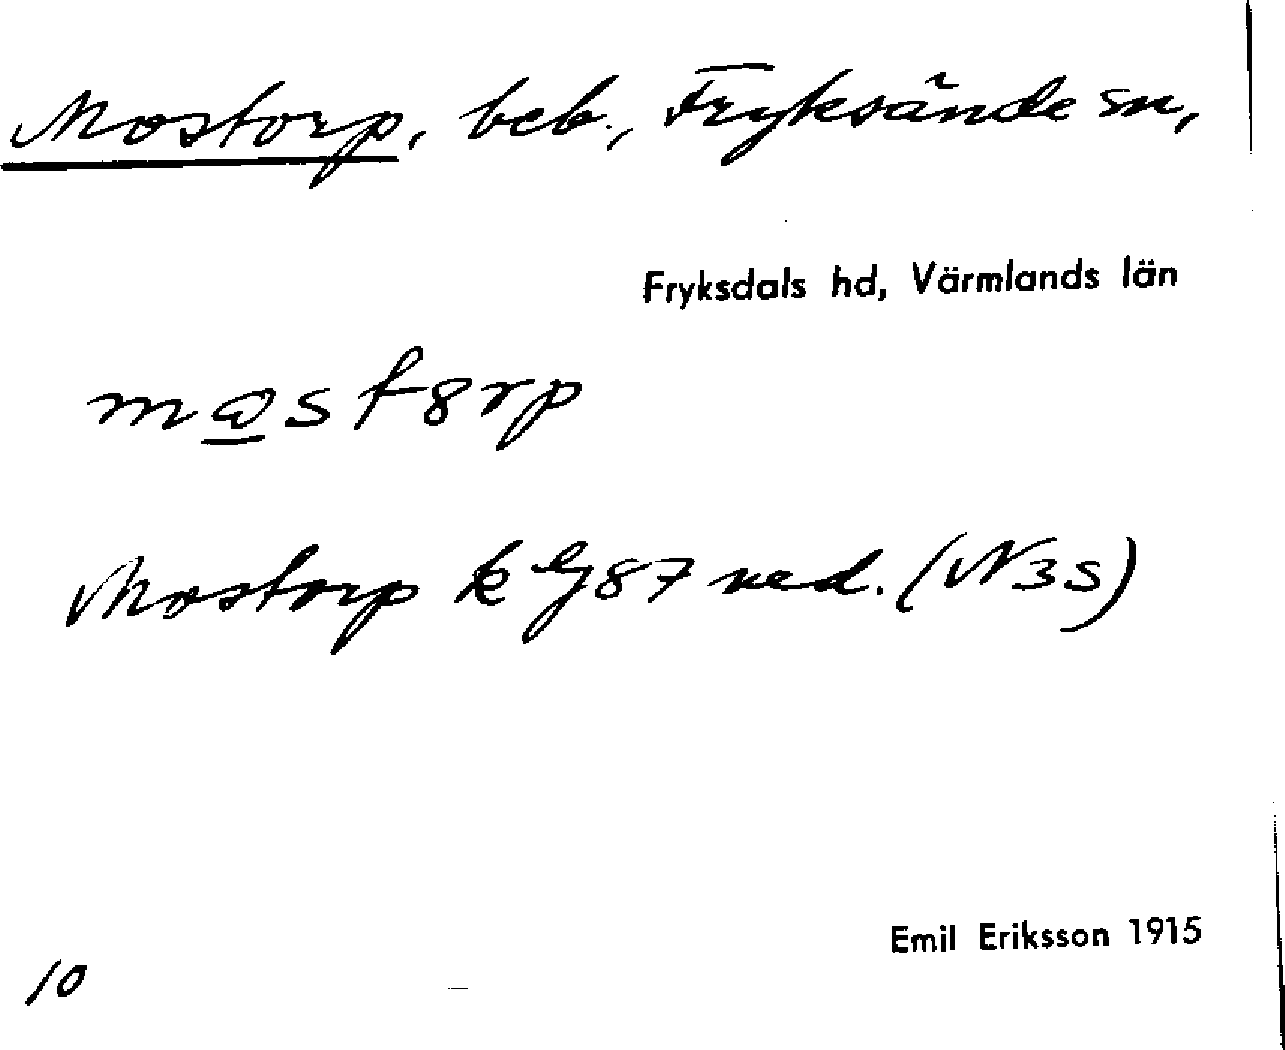 Mostorp, beb., Fryksände sn,
Fryksdals hd, Värmlands län
Mostorp k G 87 ned. (N 3 S)
Emil Eriksson 1915
10